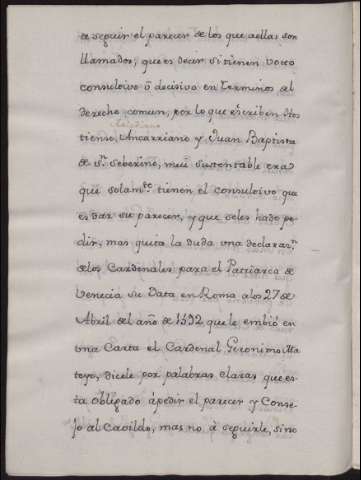 de seguir el parecer de los que aellas son
llamados, que es decir si tienen voto
consultivo ō decisivo en terminos del
derecho comun, por lo que escriben Hos
tiense, Ancarriano y Juan Baptista
de Sn. Seberino, mui sustentable era
que solamte. tienen el consultivo que
es dar su parecer, y que seles hade pe-
dir, mas quita la duda una declaran.
delos Cardenales para el Patriarca de
Venecia su Data en Roma alos 27 de
Abril del año de 1592 que le embió en
una Carta el Cardenal Geronimo Ma
teyo, dicele por palabras claras que es-
ta obligado ápedir el parecer y Conse-
jo al Cavildo, mas no á seguirle, sino